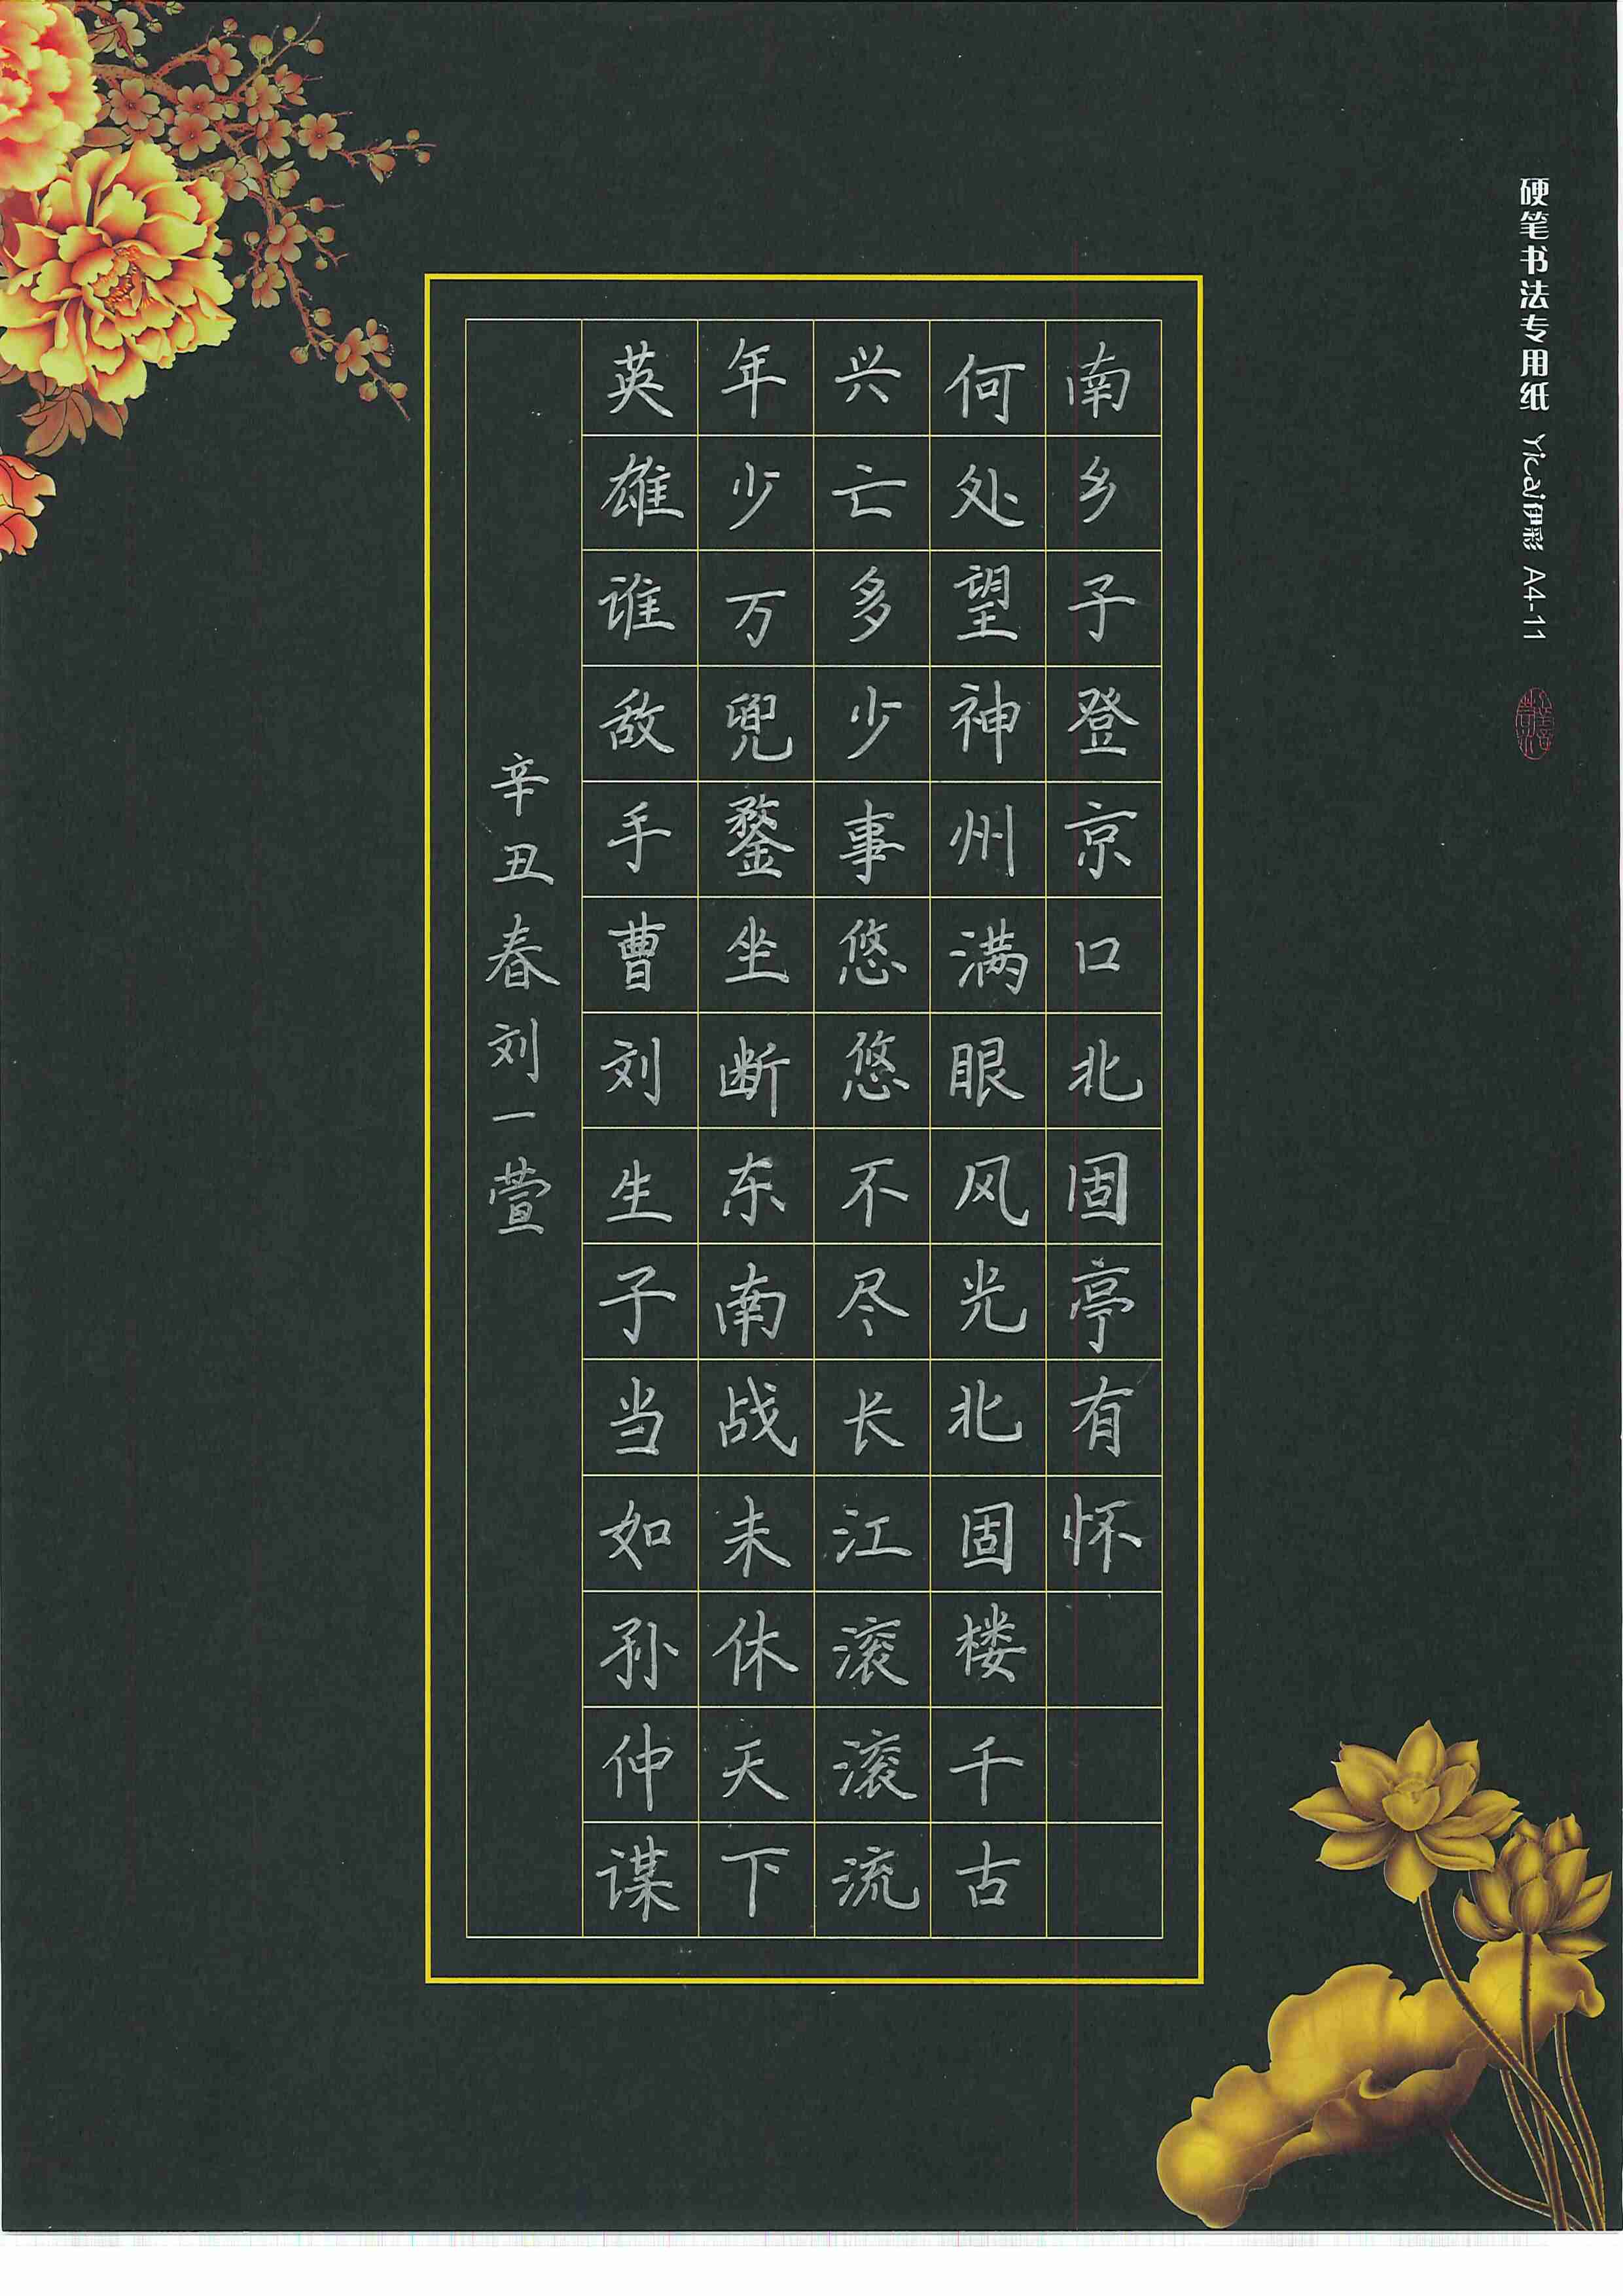 南乡子登京口北固亭有怀
何处望神州满眼风光北固楼千古
兴亡多少事悠悠不尽长江滚滚流
年少万兜鍪坐断东南战未休天下
英雄谁敌手曹刘生子当如孙仲谋
辛丑春刘一萱
硬笔书法专用纸 Yicai伊彩 A4-11